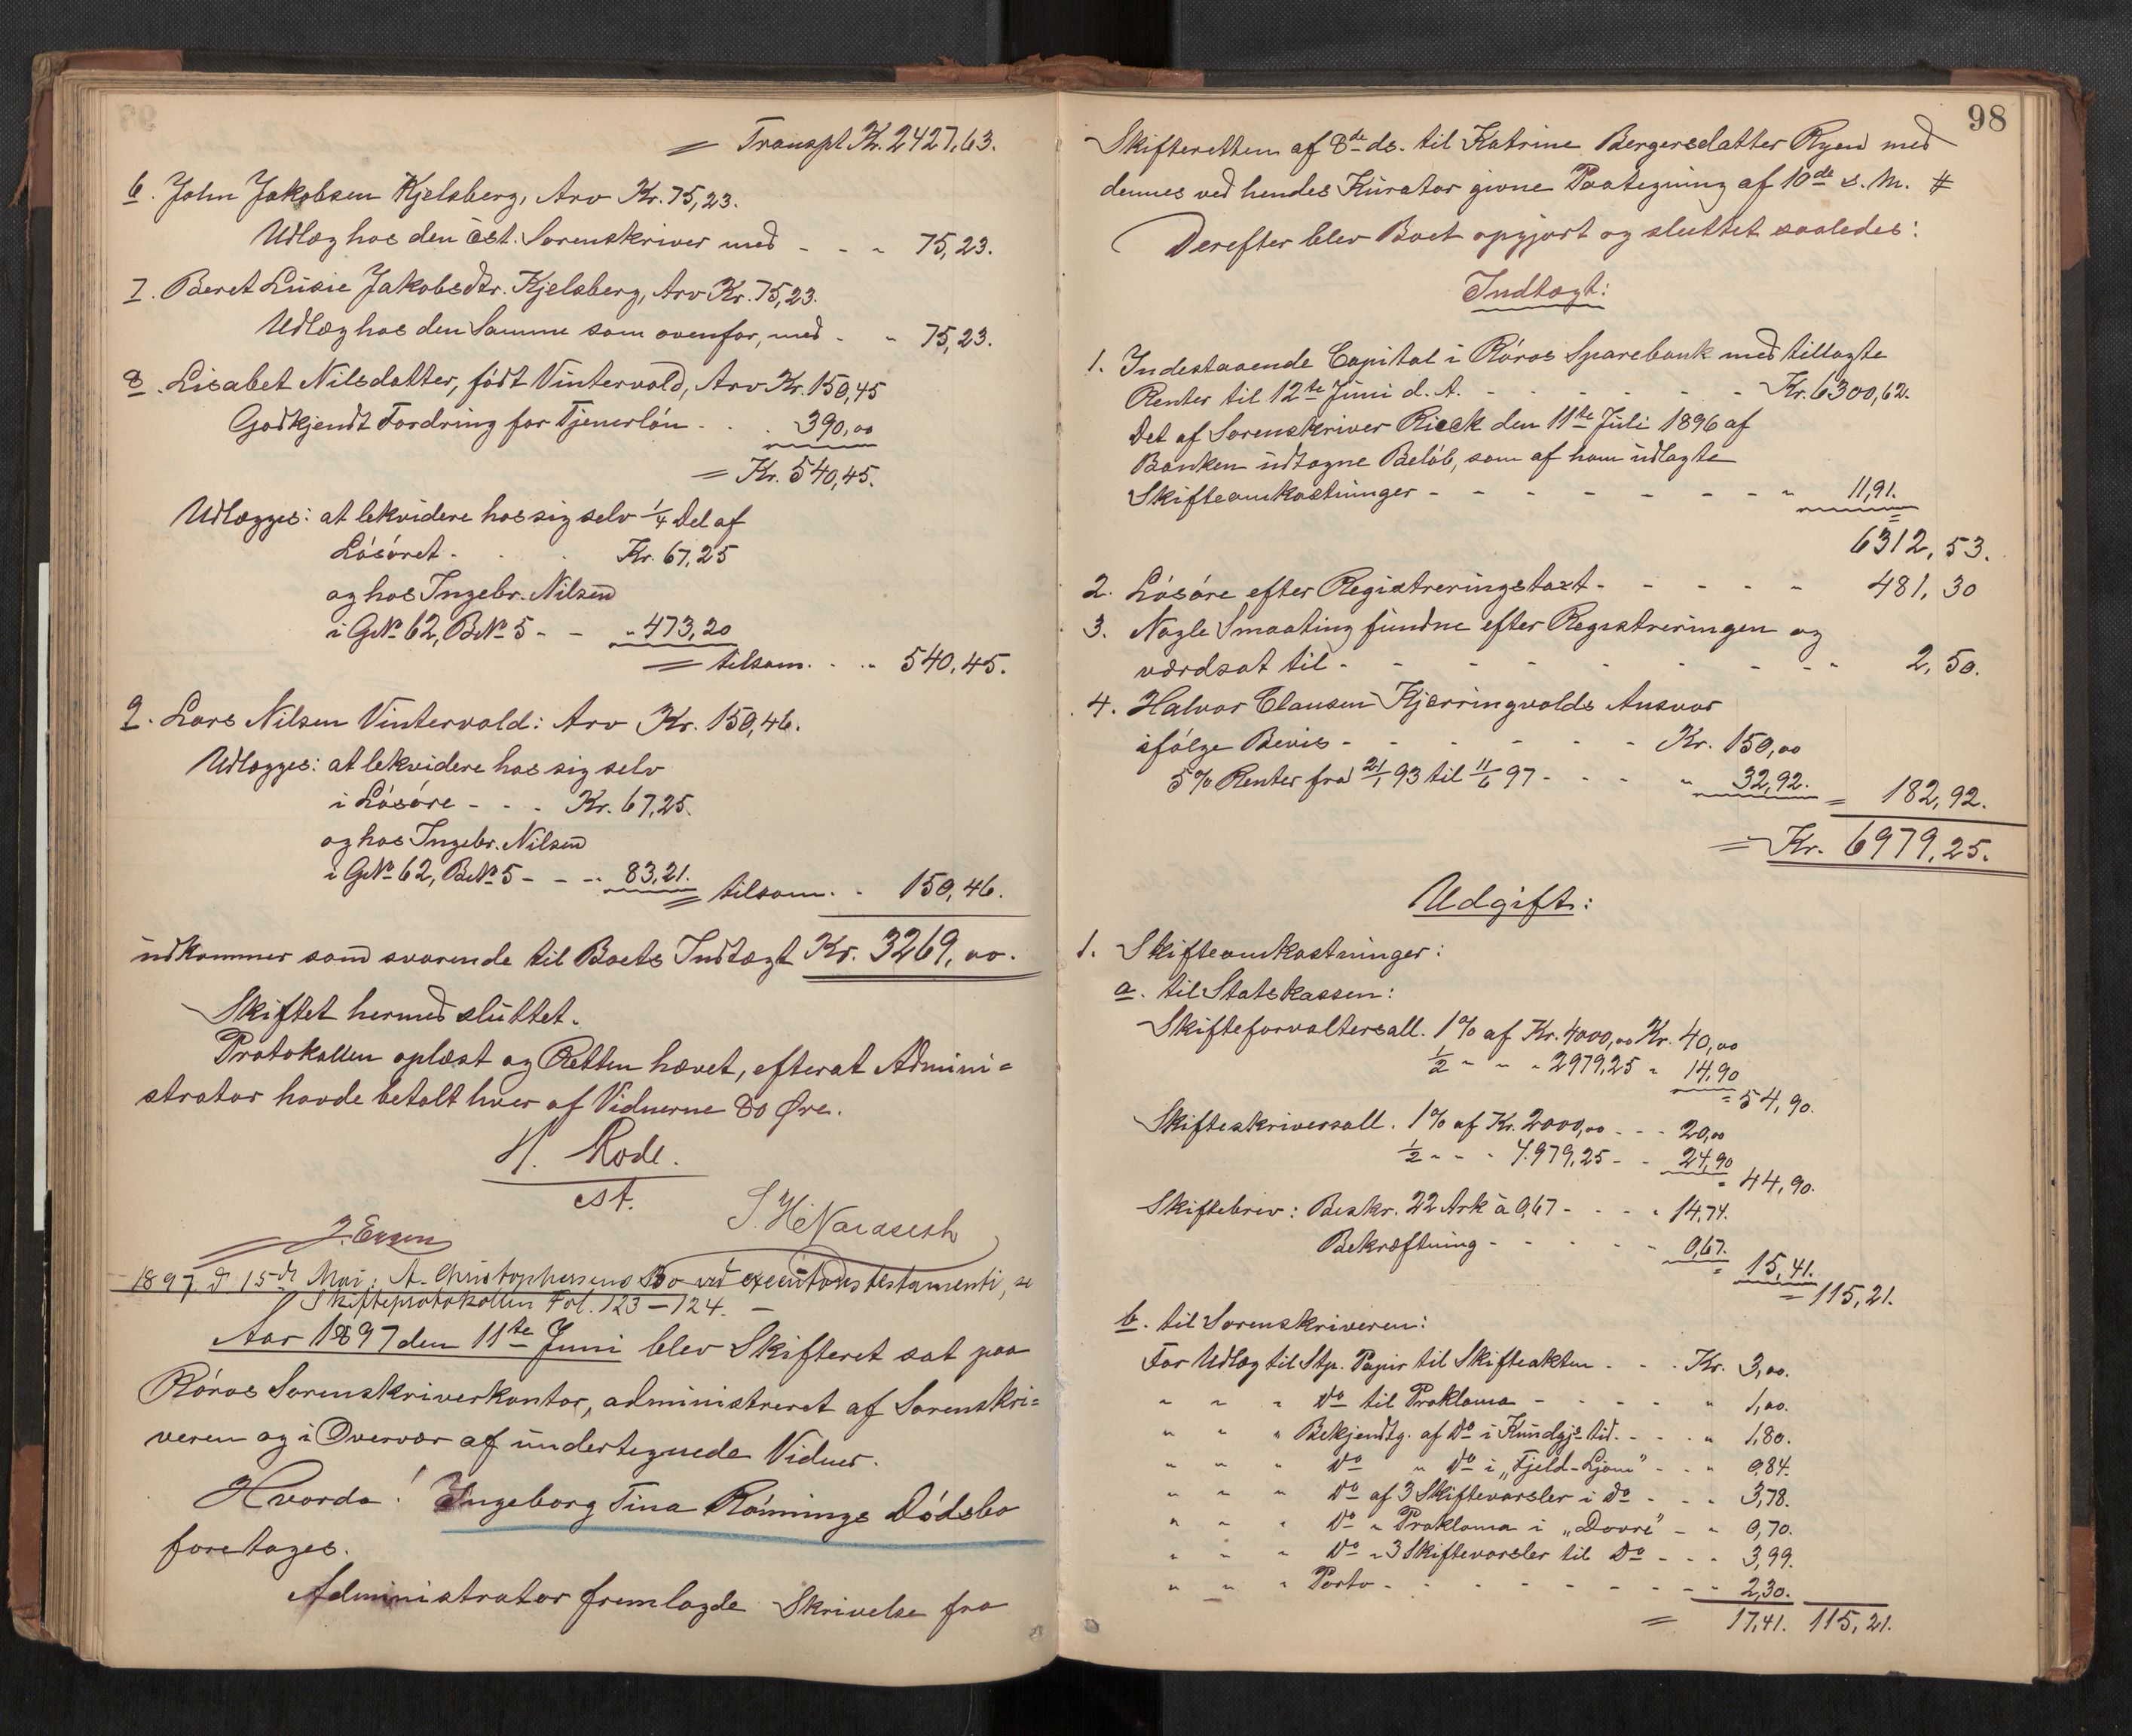 = Transpt Kr. 2427,63.
6. John Jakobsen Kjelsberg, Arv Kr. 75,23.
Udlæg hos den est. Sorenskriver med - - " 75,23.
7. Beret Lusie Jakobsdtr. Kjelsberg, Arv Kr. 75,23.
Udlæg hos den Samme som ovenfor, med - " 75,23.
8. Lisabet Nilsdatter, født Vintervold, Arv Kr. 150,45
Godkjendt Fordring for Tjenerløn - - . 390,00
= Kr. 540,45.
Udlægges: at lekvidere hos sig selv 1/4 Del af
Løsøret - . . Kr. 67,25
og hos Ingebr. Nilsen
i G.No 62, B.No 5 - - " 473,20
= tilsam. - " 540,45.
9. Lars Nilsen Vintervold: Arv Kr. 150,46.
Udlægges: at lekvidere hos sig selv
i Løsøre - - - Kr. 67,25.
og hos Ingebr. Nilsen
i G.No 62, B.No 5 - - - " 83,21.
= tilsam. - 150,46.
udkommer som svarende til Boets Indtægt Kr. 3269,00.
Skiftet hermed sluttet.
Protokollen oplæst og Retten hævet, efterat Admini=
strator havde betalt hver af Vidnerne 80 Øre.
H. Rode.
est.
J. Engen
1897 d 15de Mai: A. Christophersens Bo ved executores testamenti, se
Skifteprotokollen Fol. 123 — 124. —
Aar 1897 den 11te Juni blev Skifteret sat paa
Røros Sorenskriverkontor, administreret af Sorenskri=
veren og i Overvær af undertegnede Vidner.
Hvorda! Ingeborg Tina Rønnings Dødsbo
foretages.
Administrator fremlagde Skrivelse fra
98
Skifteretten af 8de ds. til Katrine Bergersdatter Ryen med
dennes ved hendes Kurator givne Paategning af 10de s. M. #
Derefter blev Boet opgjort og sluttet saaledes:
Indtægt:
1. Indestaaende Capital i Røros Sparebank med tillagte
Renter til 12te Juni d. A. - - - - - - Kr. 6300,62.
Det af Sorenskriver Rieck den 11te Juli 1896 af
Banken udtagne Beløb, som af ham udlagte
Skifteomkostninger - - - - - - - - " 11,91.
= 6312,53.
2. Løsøre efter Registreringstaxt - - - - - " 481,30
3. Nogle Smaating fundne efter Registreringen og
værdsat til - - - - - - - - - " 2,50.
4. Halvor Clausen Kjerringvolds Ansvar
ifølge Bevis - - - - - - Kr. 150,00
5% Renter fra 21/1 93 til 11/6 97 - - - " 32,92. = 182,92.
= Kr. 6979,25.
Udgift:
1. Skifteomkostninger:
a. til Statskassen:
Skifteforvaltersall. 1% af Kr. 4000,00 Kr. 40,00
1/2 " " " 2979,25 " 14,90
= 54,90.
Skifteskriversall. 1% af Kr. 2000,00 - - - 20,00
1/2 " - " 4.979,25 - - 24,90
= 44,90.
Skiftebrev: Beskr. 22 Ark à 0,67 - - - " 14,74.
Bekræftning - - - - - 0,67.
= 15,41.
= 115,21.
b. til Sorenskriveren:
For Udlæg til Stp. Papir til Skifteakten - - - Kr. 3,00.
" " " Do til Proklama - - - - - " 1,00.
" " " Bekjendtg. af Do i Kundgj.s tid. - - - " 1,80.
" " " Do " Do i "Fjeld-Ljom" - - " 0,84.
" " " Do af 3 Skiftevarsler i do - - - 3,78.
" " " Do " Proklama i "Dovre" - " 0,70.
" " " Do " 3 Skiftevarsler til Do - - " 3,99.
" " " Porto - - - - - - - - " 2,30.
= 17,41. 115,21.